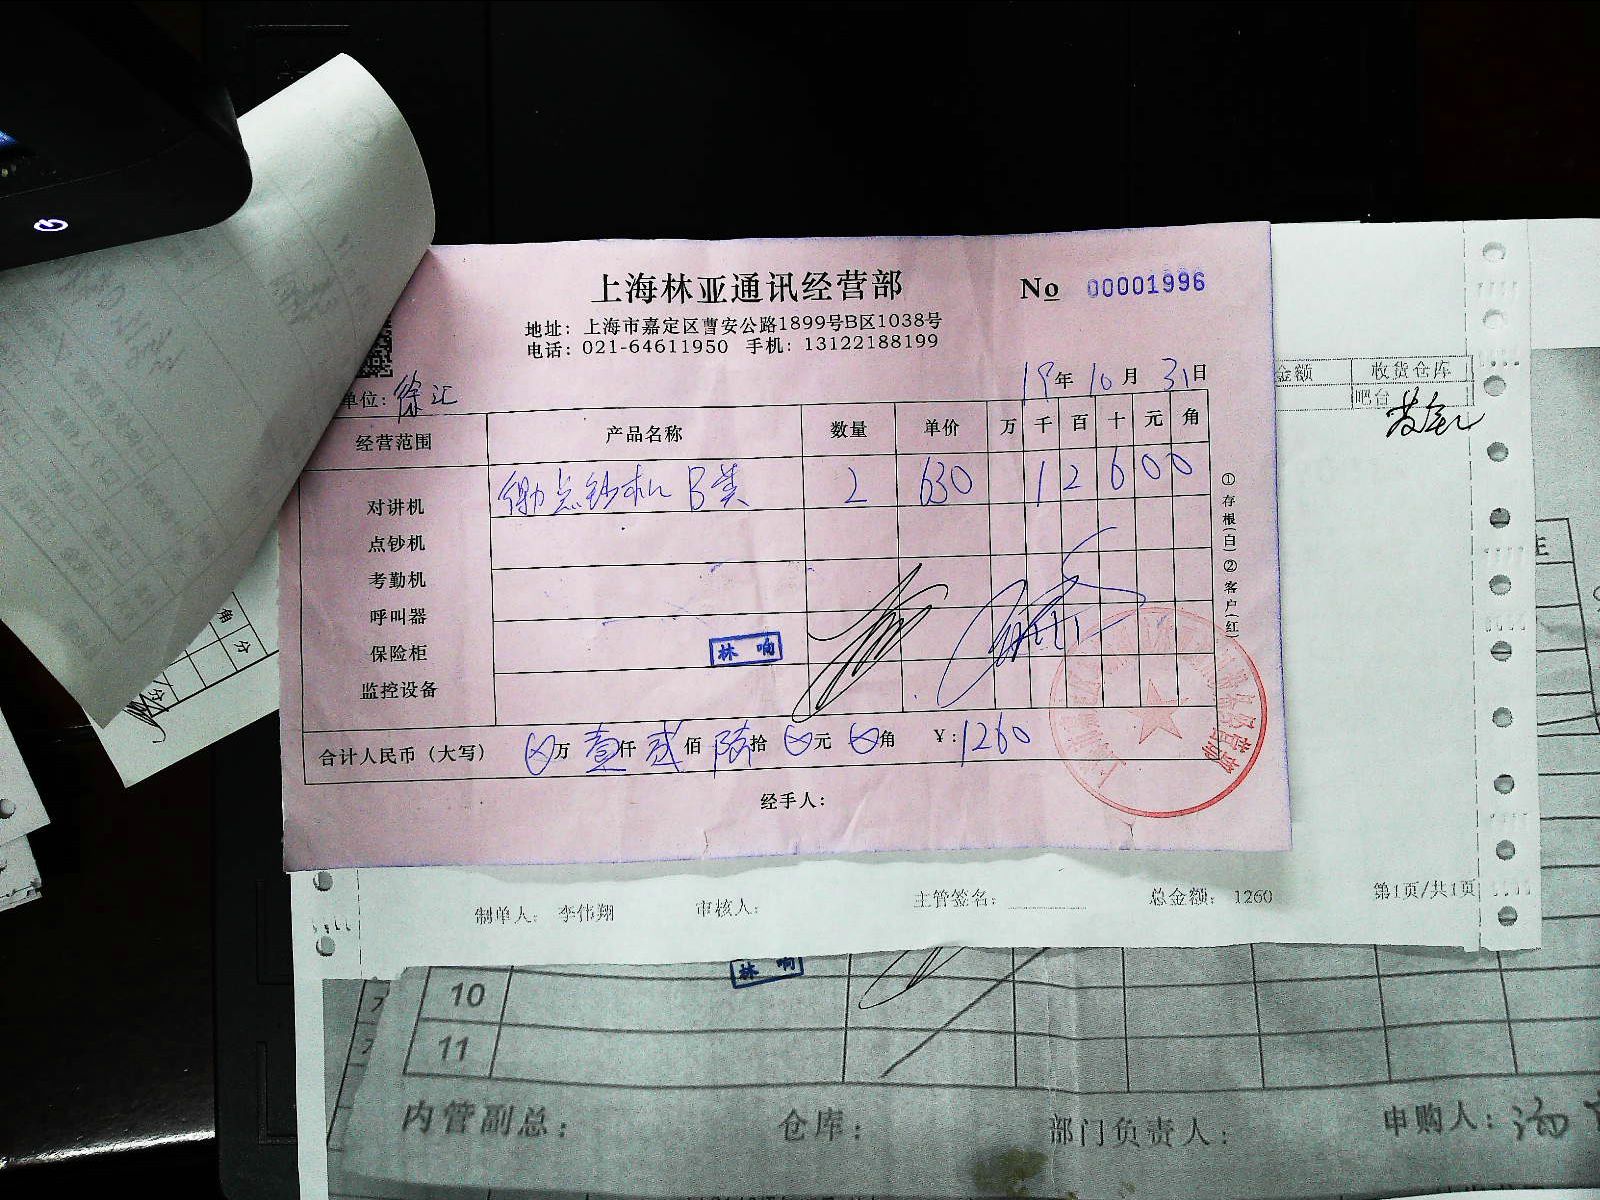 上海林亚通讯经营部
No 00001996
地址：上海市嘉定区曹安公路1899号B区1038号
电话：021-64611950 手机：13122188199
19年10月31日
单位：徐汇
经营范围 产品名称 数量 单价 万 千 百 十 元 角
点钞机 B类 2 630 1 2 6 0 0
对讲机
点钞机
考勤机
呼叫器
保险柜
监控设备
林 响
合计人民币（大写） 万 壹仟 贰佰 陆拾 元 角 ￥：1260
经手人：
①存根（白）②客户（红）
金额 收货仓库
吧台
角 分
制单人：李伟翔 审核人： 主管签名： 总金额：1260 第1页/共1页
林 响
10
11
内管副总： 仓库： 部门负责人： 申购人：